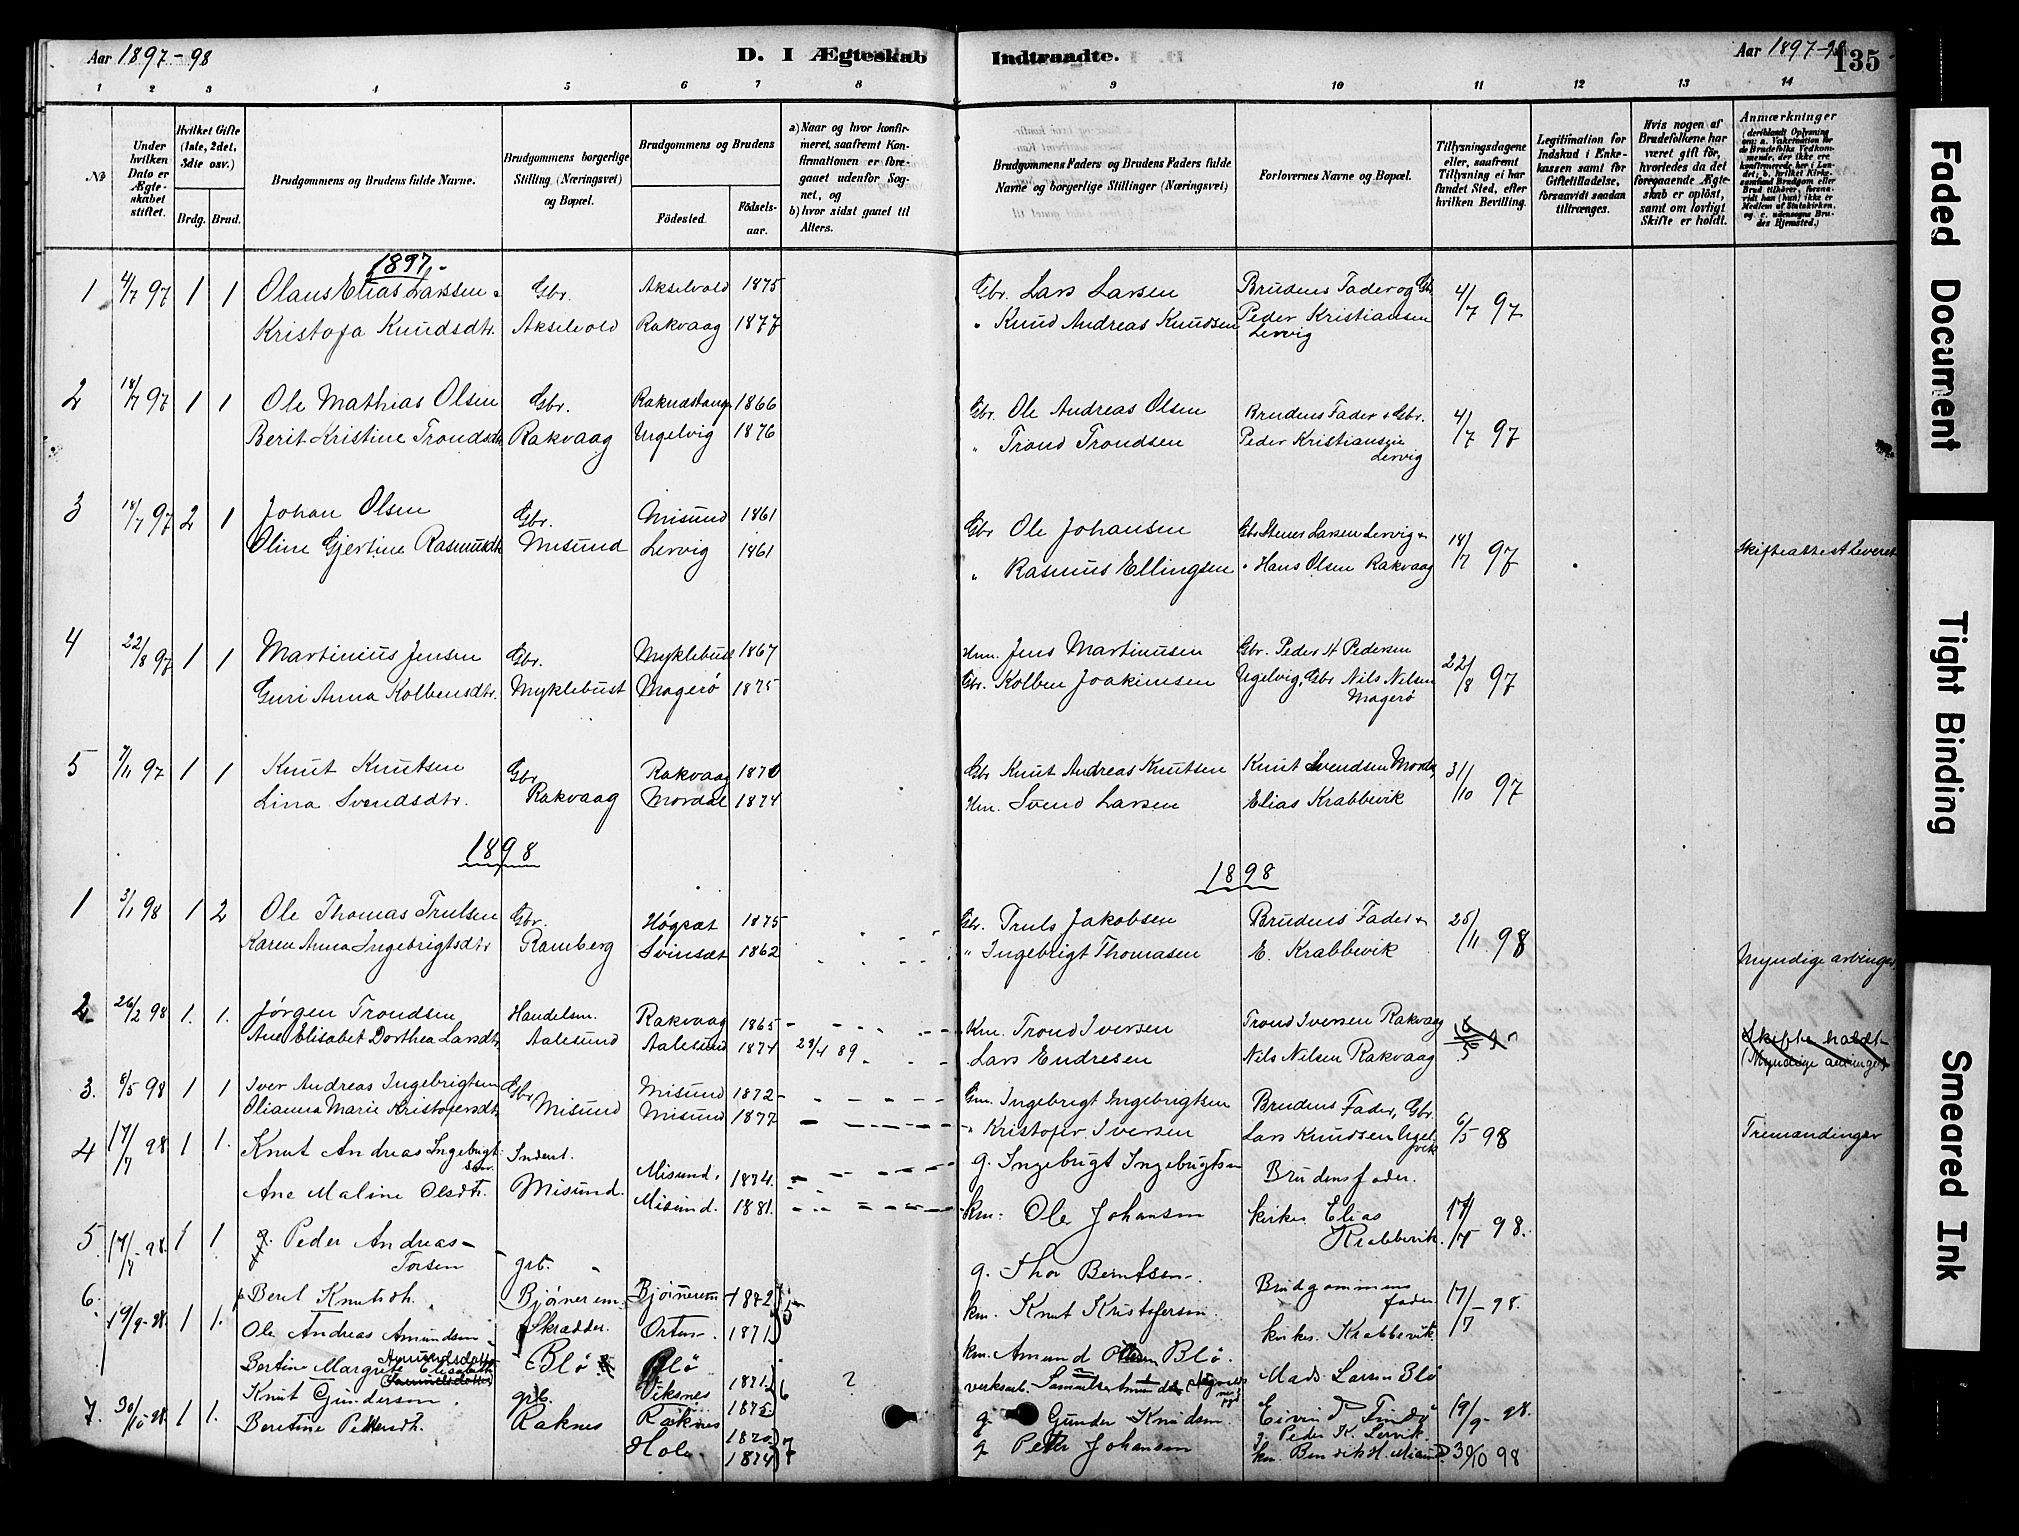 Aar 1897-98
D. I Ægteskab
Indtraadte.
Aar 1897-98
135
1 2 3 4 5 6 7 8 9 10 11 12 13 14
No
Under hvilken Dato er Ægteskabet stiftet.
Hvilket Gifte (1ste, 2det, 3die osv.)
Brdg. Brud.
Brudgommens og Brudens fulde Navne.
Brudgommens borgerlige Stilling (Næringsvei) og Bopæl.
Brudgommens og Brudens
Fødested.
Fødselsaar.
a) Naar og hvor konfirmeret, saafremt Konfirmationen er foregaaet udenfor Sognet, og
b) hvor sidst gaaet til Alters.
Brudgommens Faders og Brudens Faders fulde Navne og borgerlige Stillinger (Næringsvei)
Forlovernes Navne og Bopæl.
Tillysningsdagene eller, saafremt Tillysning ei har fundet Sted, efter hvilken Bevilling.
Legitimation for Indskud i Enkekassen samt for Giftetilladelse, forsaavidt saadan tiltrænges.
Hvis nogen af Brudefolkene har været gift før, hvorledes da det foregaaende Ægteskab er opløst, samt om lovligt Skifte er holdt.
Anmærkninger
(deriblandt Oplysning om: a. Vakcination for de Brudefolks Vedkommende, der ikke ere konfirmerede her i Landet, b. hvilket Kirkesamfund Brudgom eller Brud tilhører, forsaavidt han (hun) ikke er Medlem af Statskirken, og c. udensogns Brudes Hjemsted.)
1897.
1 4/7 97 1 1 Olaus Elias Larssen Gbr. Akselvold 1875 Gbr. Lars Larsen Brudens Fader og Gbr 4/7 97
Kristofa Knudsdtr. Akselvold Rakvaag 1877 " Knud Andreas Knudsen Peder Kristiansen
Lervig
2 18/7 97 1 1 Ole Mathias Olsen Gbr. 1866 Gbr. Ole Andreas Olsen Brudens Fader & Gbr. 4/7 97
Berit Kristine Trondsdtr Rakvaag Ugelvig 1876 " Trond Trondsen Peder Kristiansen
Lervig
3 18/7 97 2 1 Johan Olsen Gbr. Misund 1861 Gbr Ole Johansen Gbr Larsen Lervig & 18/7 97
Oline Gjertine Rasmusdtr Misund Lervig 1861 " Rasmus Ellingsen " Hans Olsen Rakvaag Skifteattest leveret
4 22/8 97 1 1 Martinius Jensen Gbr. Myklebust 1867 Hm. Jens Martinusen Gbr. Peder A Pedersen 22/8 97
Guri Anna Kolbensdtr. Myklebust Magerø 1875 Gbr. Kolben Joakimsen Ugelvig, Gbr Nils Nilsen
Magerø
5 7/11 97 1 1 Knut Knutsen Gbr Rakvaag 1870 Gbr Knut Andreas Knutsen Knut Svendsen Mordal 31/10 97
Lina Svendsdtr. Rakvaag Mordal 1874 Km. Svend Larsen Elias Krabbevik
1898
1898
1 3/1 98 1 2 Ole Thomas Trulsen Gbr. Høgset 1875 Gbr. Truls Jakobsen Brudens Fader & 25/11 98
Karen Anna Ingebrigtsdtr Ramberg Svinset 1862 " Ingebrigt Thomasen E. Krabbevik Myndige arvinger
2 26/2 98 1. 1. Jørgen Trondsen Handelsm. Rakvaag 1865 Km. Trond Iversen Trond Iversen Rakvaag
Ane Elisabet Dorthea Larsdtr. Aalesund Aalesund 1874 28/4 89 Lars Endresen Nils Nilsen Rakvaag
Skifte holdt
(Myndige arvinger)
3. 8/5 98 1 1 Iver Andreas Ingebrigtsen Gbr Misund 1872 Gm. Ingebrigt Ingebrigtsen Brudens Fader, Gbr. 6/5 98
Olianna Marie Kristofersdtr. Misund Misund 1877 " Kristofer Iversen Lars Knudsen Ugelvik Tremændinger
4 17/7 98 1 1. Knut Andreas Ingebrigtsen Inderst. Misund. 1874. g. Ingebrigt Ingebrigtsen Brudens fader.
Ane Maline Olsdtr. Misund. Misund. 1881. km. Ole Johansen kirkes. Elias Krabbevik. 17/7 98.
5. 17/7 98. 1 1. g. Peder Andreas Torsen grb. Bjørnerem 1872 5 g. Thor Berntsen Brudgommens fader. 17/7 98.
Berit Knutsdtr. Bjørnerem. Orten 1871 km. Knut Kristofersen kirkes. Krabbevik.
6. 19/9 98. 1 1. Ole Andreas Amundsen Skrædder. Blø 1871 6 ? km. Amund Blø. Mads Larsen Blø
Bertine Margrete Elisabeth Amundsdatter Samuelsdatter Blø Viksnes 1875 verksarb. Eivind 19/9 98.
7. 30/10 98. 1 1. Knut Gundersen. grb. Raknes 1870 7 g. Gunder Knudsen. g. Peder K. Lervik
Beretine Pettersdtr. Raknes Hole 1874 g Petter Johansen km. Bendik 30/10 98
Faded Document
Tight Binding
Smeared Ink